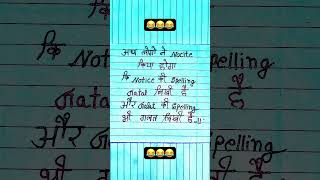 अब लोगो ने Nocite
किया होगा
कि Notice की Spelling
Gatat लिखी है
और Galat की Spelling
भी गलत लिखी है..!!